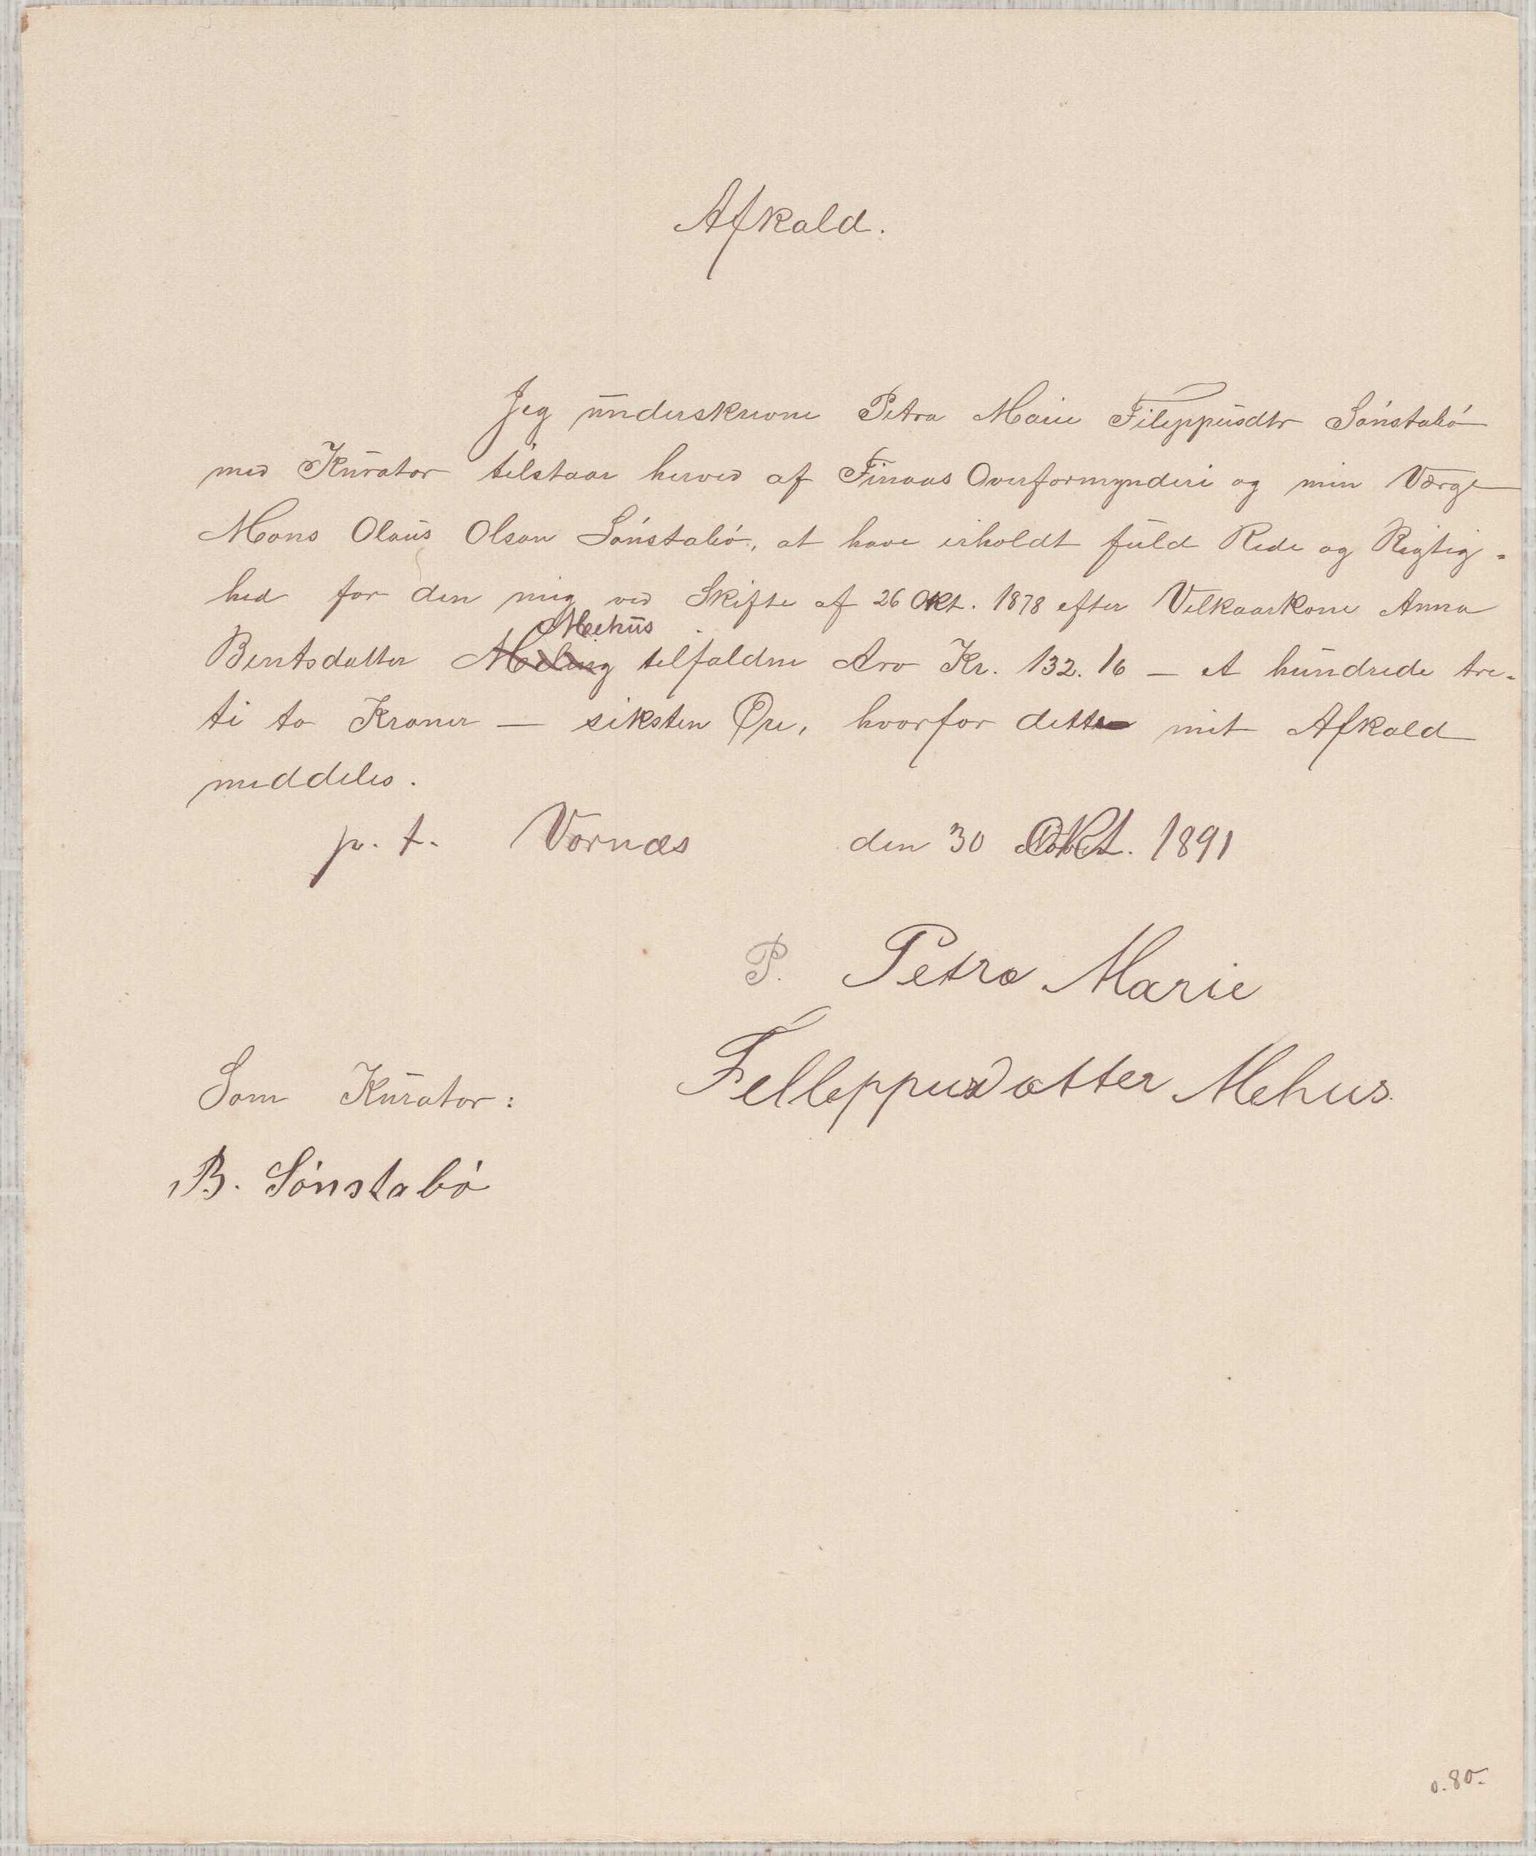 Afkald.
Jeg underskrevne Petra Marie Fileppusdtr Sónstabó
med Kurator tilstaar herved af Finaas Overformynderi og min Værge
Mons Olaus Olson Sónstabó, at have erholdt fuld Rede og Rigtig-
hed for den mig ved Skifte af 26 Okt. 1878 efter Velkaarkone Anna
Mehus
Bentsdatter Meling tilfaldne Arv Kr. 132.16 — et hundrede tre-
ti to Kroner — seksten Øre, hvorfor dette mit Afkald
meddeles.
p. t. Vornæs den 30 Okt. 1891
P. Petra Marie
Felleppusdatter Mehus.
Som Kurator:
B. Sónstabó
0.80.